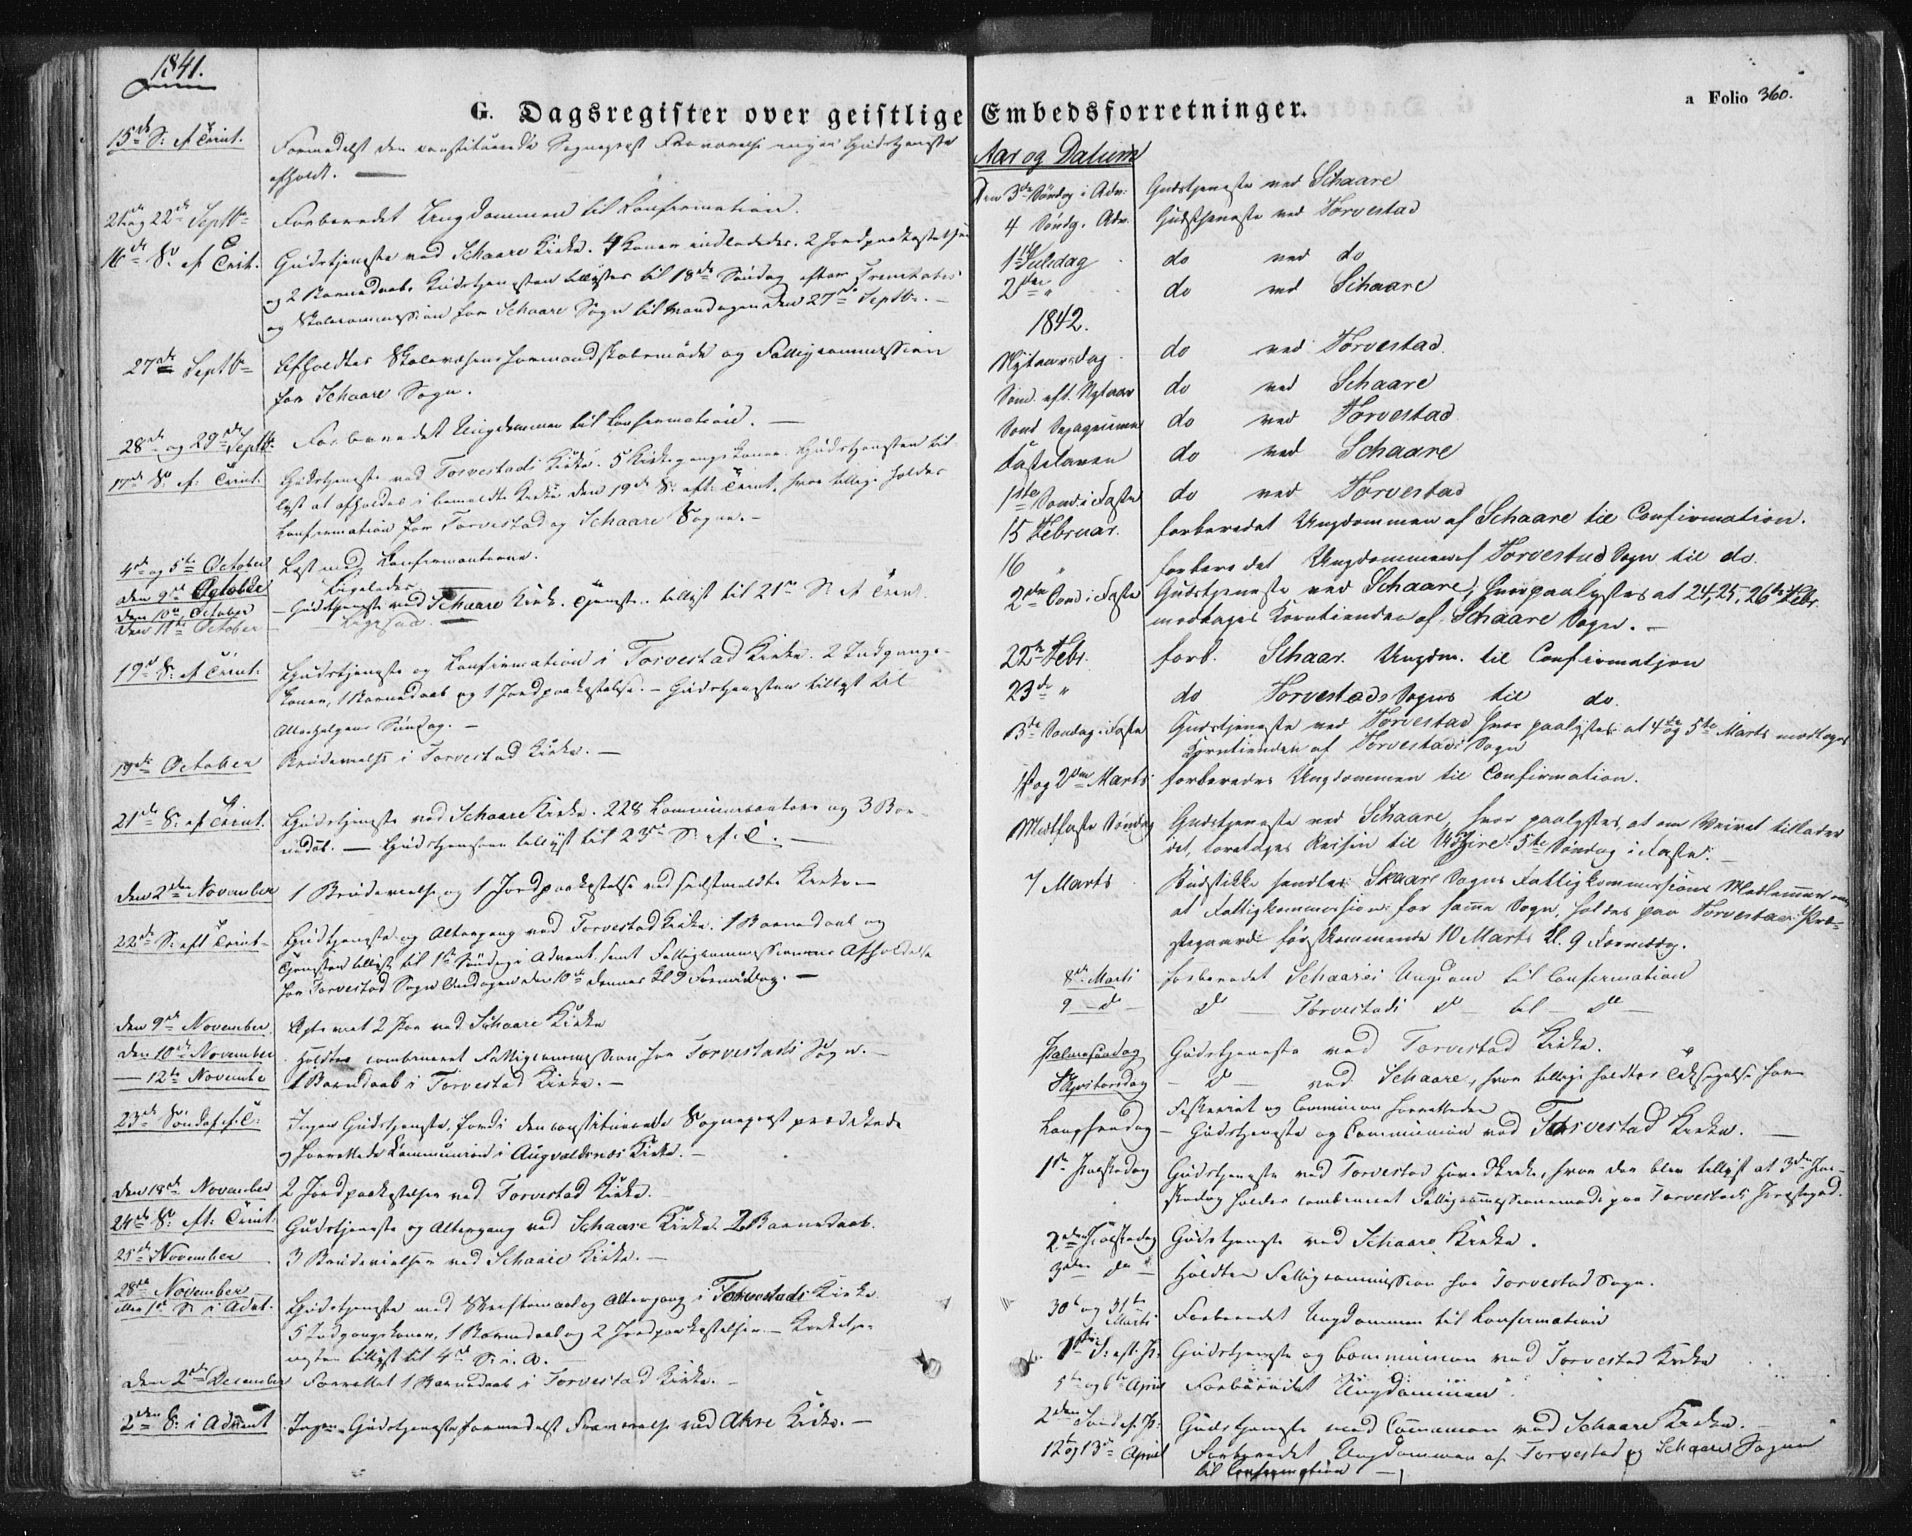 1841.
G. Dagsregister over geistlige Embedsforretninger.
a Folio 360.
15de S: ef Trint. Formedelst den constituerende Sognepræst Fraværelse ingen Gudstjeneste
afholdt. —
21de og 22de Septbr Forberedet Ungdommen til Confirmation.
16de S. ef Trit. Gudstjeneste ved Schaare Kirke. 4 Koner indlededes. 2 Jordpaakastelser
og 2 Barnedaab. Gudstjenesten tillystes til 18de Søndag efter Trenitatis
og Skolecommission for Schaare Sogn til Mandagen den 27de Septbr. —
27de Septbr Afholdtes Skolevæsens Formandskabsmøde og Fattigcommission
for Schaare Sogn.
28de og 29de Septbr. Forberedet Ungdommen til Confirmation. —
17de S. ef: Trint. Gudstjeneste ved Torvestads Kirke. 5 Kirkegangskoner. Gudstjenesten til-
lyst at afholdes i bemeldte Kirke den 19de S: eft: Trint, hvor tillige holdes
Confirmation for Torvestad og Schaare Sogne. —
4de og 5te October Læst med Konfirmanterne.
den 9de October Ligeledes
den 10de October — Gudstjeneste ved Schaare Kirk. Tjeneste tillyst til 21de S: ef Trin.
den 11te October Ligesaa. —
19de S: ef Trint: Gudstjeneste og Confirmation i Torvestad Kirke. 2 Indgangs-
koner, 1 Barnedaab og 1 Jordpaakastelse. — Gudstjenesten tillyst til
Allehelgens Søndag. —
19de October Brudevielse i Torvestad Kirke. —
21de S: ef Trint. Gudstjeneste ved Schaare Kirke. 228 Communicantere og 3 Bar-
nedaab. — Gudstjenesten tillyst til 23de S: ef: T. —
den 2den November 1 Brudevielse og 1 Jordpaakastelse ved sidstmeldte Kirke —
22de S: eft Trint — Gudstjeneste og Altergang ved Torvestad Kirke. 1 Barnedaab og
Tjenesten tillyst til 1ste Søndag i Advent, samt Fattigcommissionens Afholdelse
for Torvestad Sogn Onsdagen den 10de dennes Kl 9 Formiddag. —
den 9de November Ægteviet 2 Par ved Schaare Kirke
den 10de November Holdtes combineret Fattigcommission for Torvestads Sogn. —
— 12te November 1 Barnedaab i Torvestad Kirke. —
23de Søndag ef: T: Ingen Gudstjeneste, fordi den constituerede Sognepræst prædikede
og forrettede Communion i Augvaldsnæs Kirke. —
den 18de November 2 Jordpaakastelser ved Torvestad Kirke. —
24de S. ft: Trint: Gudstjeneste og Altergang ved Schaare Kirke. 2 Barnedaab.
25de November 3 Brudevielser ved Schaare Kirke. —
28de November
eller 1ste S: i Advt: Gudstjeneste med Skriftemaal og Altergang i Torvestads Kirke
5 Indgangskoner, 1 Barnedaab og 2 Jordpaakastelser. — Kirketje-
nesten tillyst til 4de S: i. A. —
den 2den December Forrettet 1 Barnedaab i Torvestad Kirke. —
2den S: i Advent Ingen Gudstjeneste formedelst Fraværelse ved Akre Kirke. —
Aar og Datum
Den 3de Søndag i Adv: Gudstjeneste ved Schaare
4 Søndg. Adv. Gudstjeneste ved Torvestad
1ste Juledag do ved do
2den " do ved Schaare
1842.
Nytaarsdag do ved Torvestad
Sønd. eft. Nytaar do ved Schaare
Sønd Sexagesima do ved Torvestad
Fastelaven do ved Schaare
1ste Sønd. i Faste do ved Torvestad
15 Februar. forberedet Ungdommen af Schaare til Confirmation.
16 " forberedet Ungdommen af Torvestad Sogn til do.
2den Sønd. i Faste Gudstjeneste ved Schaare, hvor paalystes at 24, 25, 26de Febr.
modtages Korntienden af Schaare Sogn. —
22de Febr. forb. Schaar. Ungdm. til Confirmatjon
23de " do Torvestads Sogns til do.
3de Søndag i Faste Gudstjeneste ved Torvestad hvor paalystes at 4de og 5te Marts modtages
Korntienden af Torvestads Sogn
1ste og 2den Marts forberedes Ungdommen til Confirmation.
Midtfaste Søndag Gudstjeneste ved Schaare, hvor paalystes, at om Veiret tillader
det, foretages Reisen til Udzire 5te Søndag i Faste. —
7 Marts Budstikke sendtes Skaare Sogns Fattigkommissions Medlemmer om
at Fattigkommission for samme Sogn, holdes paa Torvestads Præ-
stegaard førstkommende 10 Marts Kl. 9 Formiddg.
8de Marts forberedet Schaares Ungdom til Confirmation
9 — d— D — Torvestads D— til — D —
Palmesøndag Gudstjeneste ved Torvestad Kirke.
Skjertorsdag — D — ved Schaare, hvor tillige holdtes Taksigelse for
Fiskeriet og Communion forrettedes
Langfredag — Gudstjeneste og Communion ved Torvestad Kirke. —
1ste Paaskedag Gudstjeneste ved Torvestad Hovedkirke, hvor der blev tillyst at 3die Paa-
skedag holdes combineret Fattigcommissionsmøde paa Torvestads Præstegrd.
2den Paaskedag Gudstjeneste ved Schaare Kirke.
3die do Holdtes Fattigcommission for Torvestad Sogn.
30te og 31te Marts Forberedet Ungdommen til Confirmation
1ste S: eft. P. Gudstjeneste og Communion ved Torvestad Kirke
5te og 6te April Forberedet Ungdommen.
2den Sønd ef. P: Gudstjeneste med Communion ved Schaare Kirke. —
12te og 13de April Forberedet Ungdommen af Torvestad og Schaare Sogne
til Confirmation —